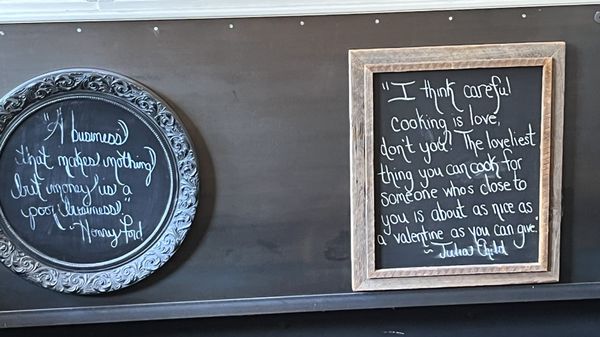 "A business
that makes nothing
but money is a
poor business."
~Henry Ford
"I think careful
cooking is love,
don't you? The loveliest
thing you can cook for
someone who's close to
you is about as nice as
a valentine as you can give."
~ Julia Child